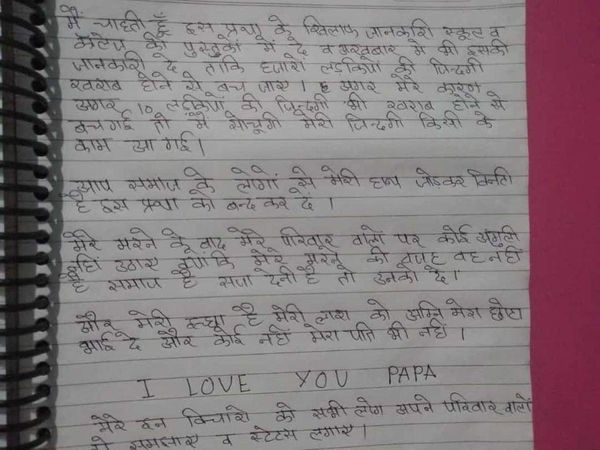 मैं चाहती हूँ इस प्रथा के खिलाफ जानकारी स्कूल व
कॉलेज की पुस्तकों में दे व अखबार में भी इसकी
जानकारी दे ताकि हजारों लड़कियों की जिन्दगी
खराब होने से बच जाए। अगर मेरे कारण
अगर 10 लड़कियों की जिन्दगी भी खराब होने से
बच गई तो मैं सोचूगी मेरी जिन्दगी किसी के
काम आ गई।
आप समाज के लोगों से मेरी हाथ जोडकर विनती
है इस प्रथा को बन्द कर दे।
मेरे मरने के बाद मेरे परिवार वालों पर कोई अंगुली
नहीं उठाए क्योंकि मेरे मरने की वजह वह नहीं
है समाज है सजा देनी है तो उनको दे।
और मेरी इच्छा है मेरी लाश को अग्नि मेरा छोटा
भाई दे और कोई नहीं मेरा पति भी नहीं।
I LOVE YOU PAPA
मेरे इन विचारो को सभी लोग अपने परिवार वालों
में समझाए व स्टेटस लगाए।